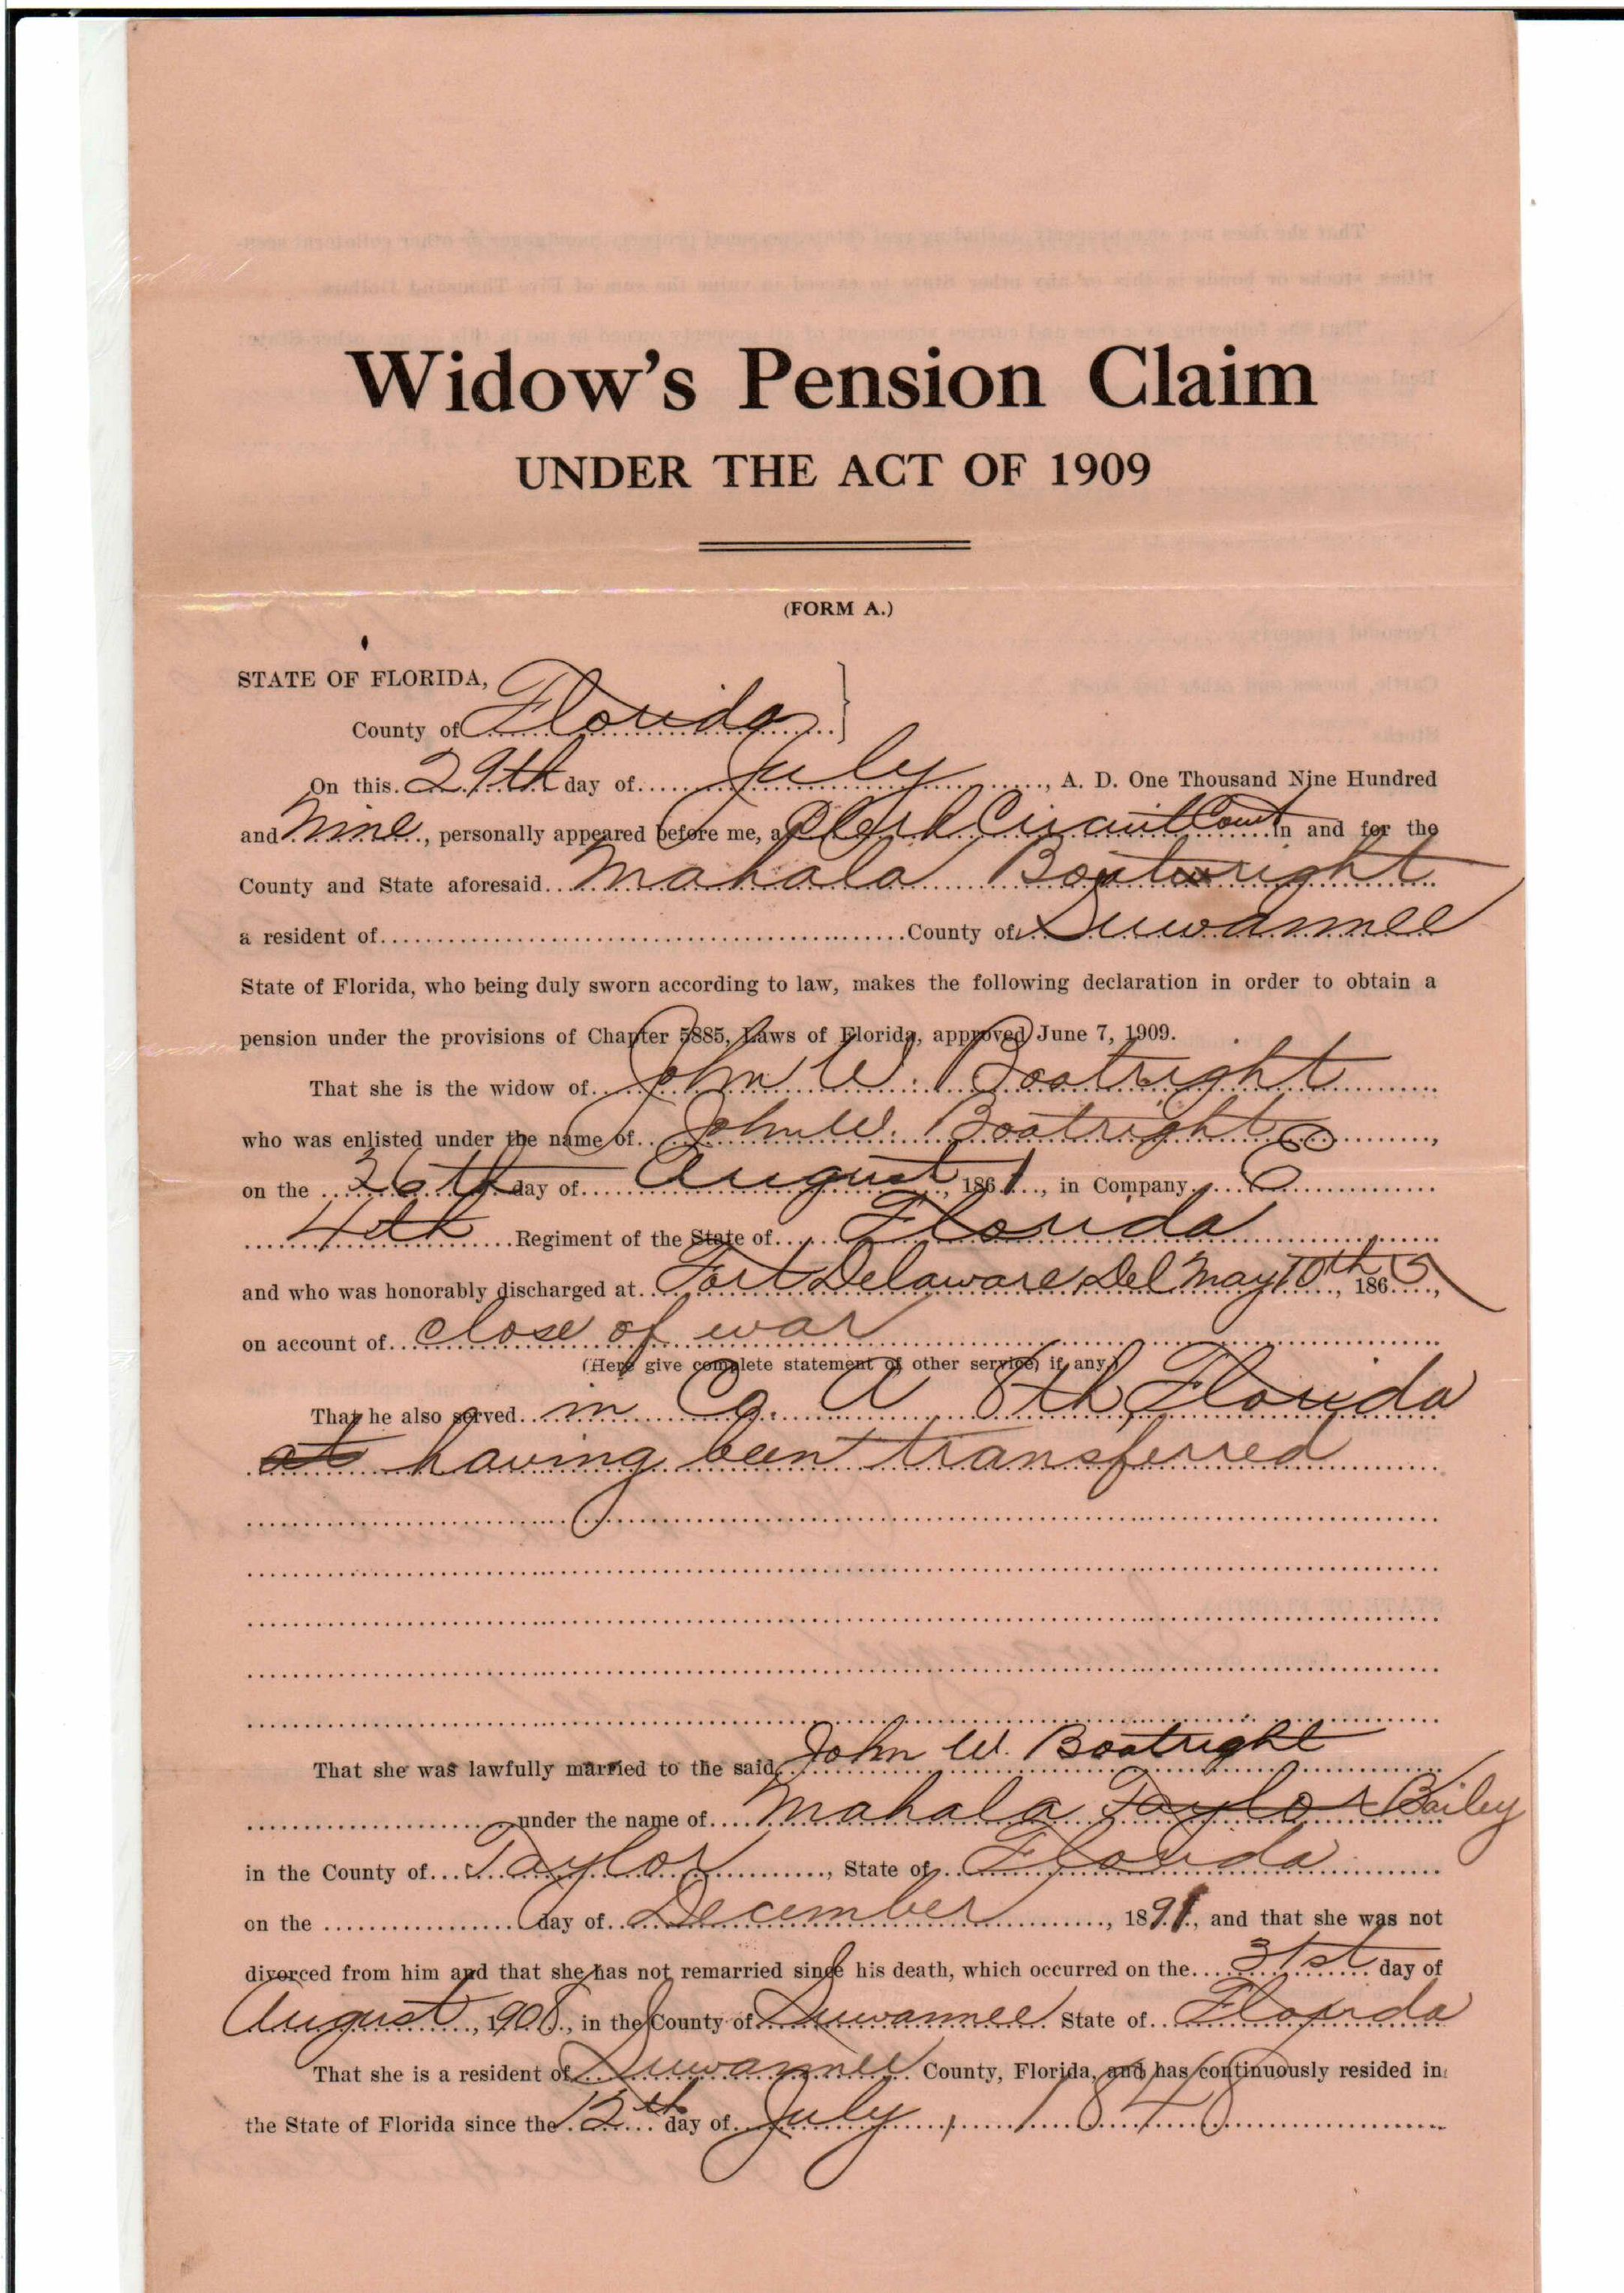 Widow's Pension Claim
UNDER THE ACT OF 1909
(FORM A.)
STATE OF FLORIDA,
County of Florida
On this 29th day of July, A. D. One Thousand Nine Hundred
and Nine, personally appeared before me, a Clerk Circuit Court in and for the
County and State aforesaid Mahala Boatwright
a resident of County of Suwannee
State of Florida, who being duly sworn according to law, makes the following declaration in order to obtain a
pension under the provisions of Chapter 5885, Laws of Florida, approved June 7, 1909.
That she is the widow of John W. Boatright
who was enlisted under the name of John W. Boatright,
on the 26th day of August, 1861, in Company
4th Regiment of the State of Florida
and who was honorably discharged at Fort Delaware Del May 10th, 1865,
on account of close of war
(Here give complete statement of other service, if any.)
That he also served in Co. A 8th, Florida
at having been transferred
That she was lawfully married to the said John W. Boatright
under the name of Mahala Taylor Bailey
in the County of Taylor, State of Florida
on the day of December, 1891, and that she was not
divorced from him and that she has not remarried since his death, which occurred on the 31st day of
August, 1908, in the County of Suwannee State of Florida
That she is a resident of Suwannee County, Florida, and has continuously resided in
the State of Florida since the 12th day of July, 1848